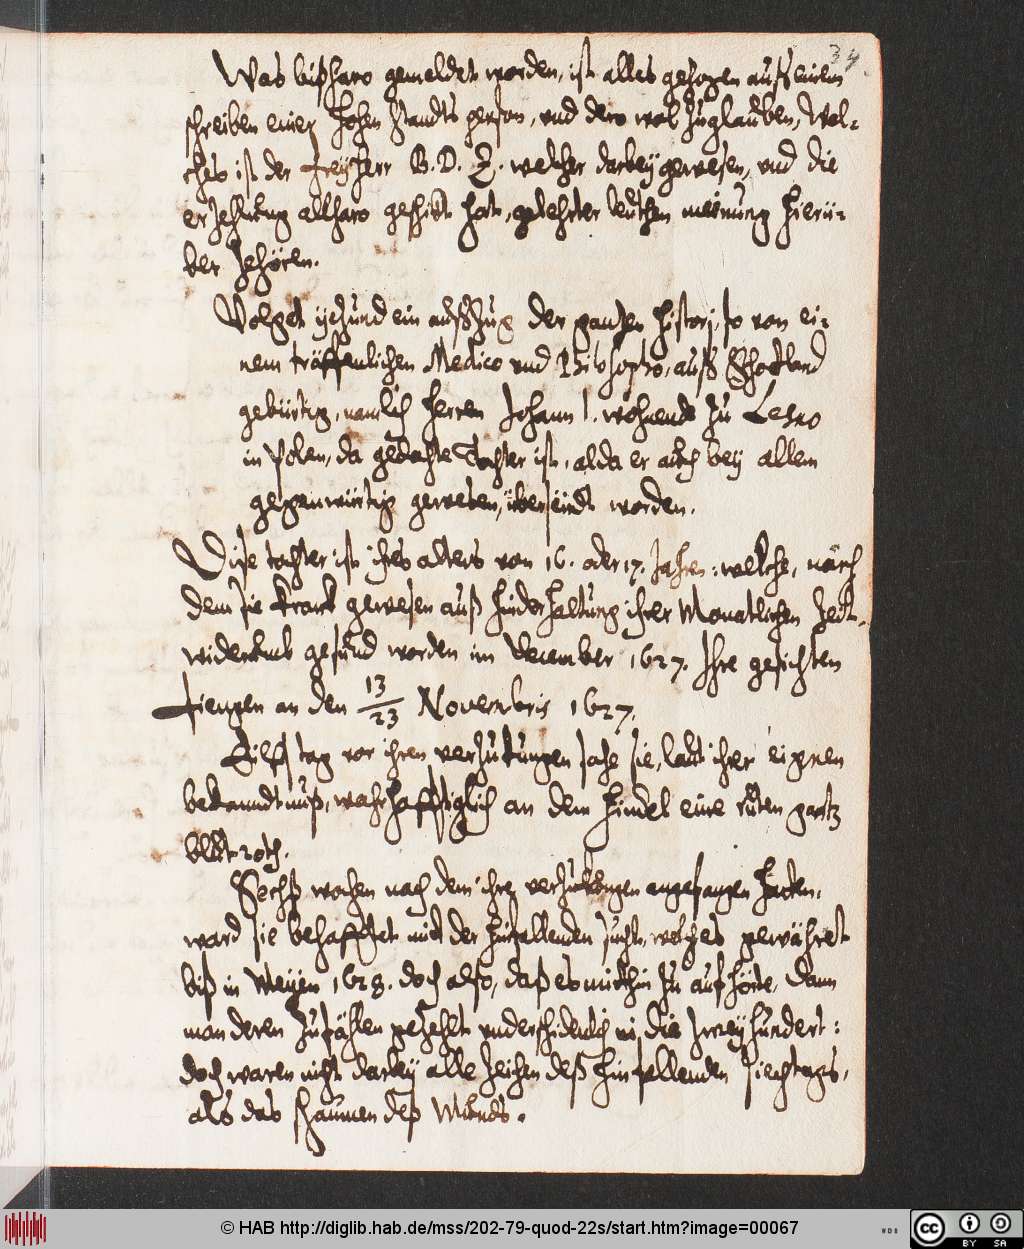 34.
Was bißharo gemeldet worden, ist alles gezogen auß einem
schreiben einer hohen standts person, vnd dero wol zuglauben, Wel-
ches ist der freyherr B. D. Z. welcher darbey gewesen, vnd die
erzehlung allharo geschikt hat, gelehrter leuthen meinung hierü-
ber zehören.
Volget yezund ein außzug der gantzen histori, so von ei-
nem träffenlichen Medico vnd Philosopho, auß Schottland
gebürtig, namlich Herren Johann I. wohnende zu Lesno
in Polen, da gedachte Tochter ist, alda er auch bey allem
gegenwürtig gewesen, überseündt worden.
Dise tochter ist ihres alters von 16. oder 17. Jahren: welche, nach
dem sie krank gewesen auß hinderhaltung ihrer Monatlichen zeit,
widerumb gesund worden im December 1627. Ihre gesichten
fiengen an den 13/23 Novembris 1627.
Eilff tag vor ihren verzukungen sahe sie, laut ihrer eignen
bekanndtnuß, wahrhafftiglich an dem himel eine ruten gantz
blutroth.
Sechß wochen nach dem ihre verzukungen angefangen hatten,
ward sie behafftet mit der hinfallenden sucht, welches gewähret
biß in Meyen 1628. doch also, daß es mithin zu aufhörte, dann
man deren zufählen gezehlt vnderschidenlich in die zwey hundert:
doch waren nicht darbey alle zeichen deß hinfallenden siechtags,
als das schaumen deß Munds.
© HAB http://diglib.hab.de/mss/202-79-quod-22s/start.htm?image=00067
WDB
cc BY SA